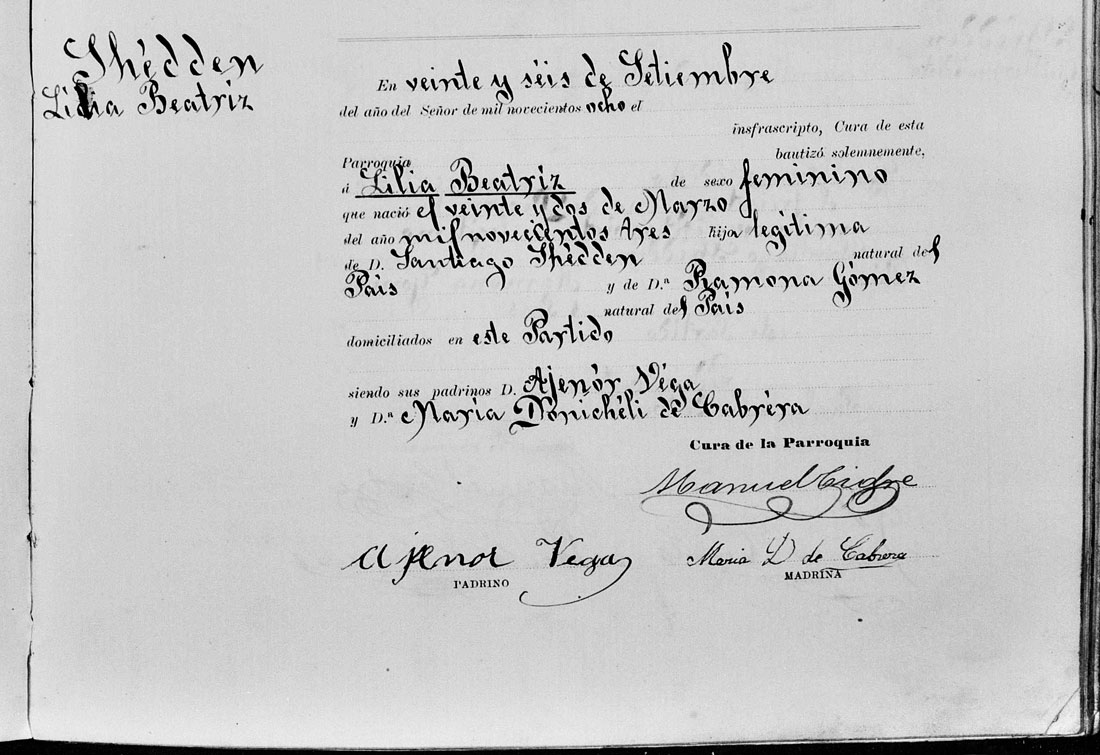 Shédden
Lilia Beatriz
En veinte y séis de Setiembre
del año del Señor de mil novecientos ocho el
insfrascripto, Cura de esta
Parroquia bautizó solemnemente,
á Lilia Beatriz de sexo feminino
que nació el veinte y dos de Marzo
del año mil novecientos tres hija legítima
de D. Santiago Shédden natural del
País y de D.ª Ramona Gómez
natural del País
domiciliados en este Partido
siendo sus padrinos D. Ajenór Véga
y D.ª María Donichéli de Cabréra
Cura de la Parroquia
Manuel Cidre
Ajenor Vega Maria D de Cabrera
PADRINO MADRINA